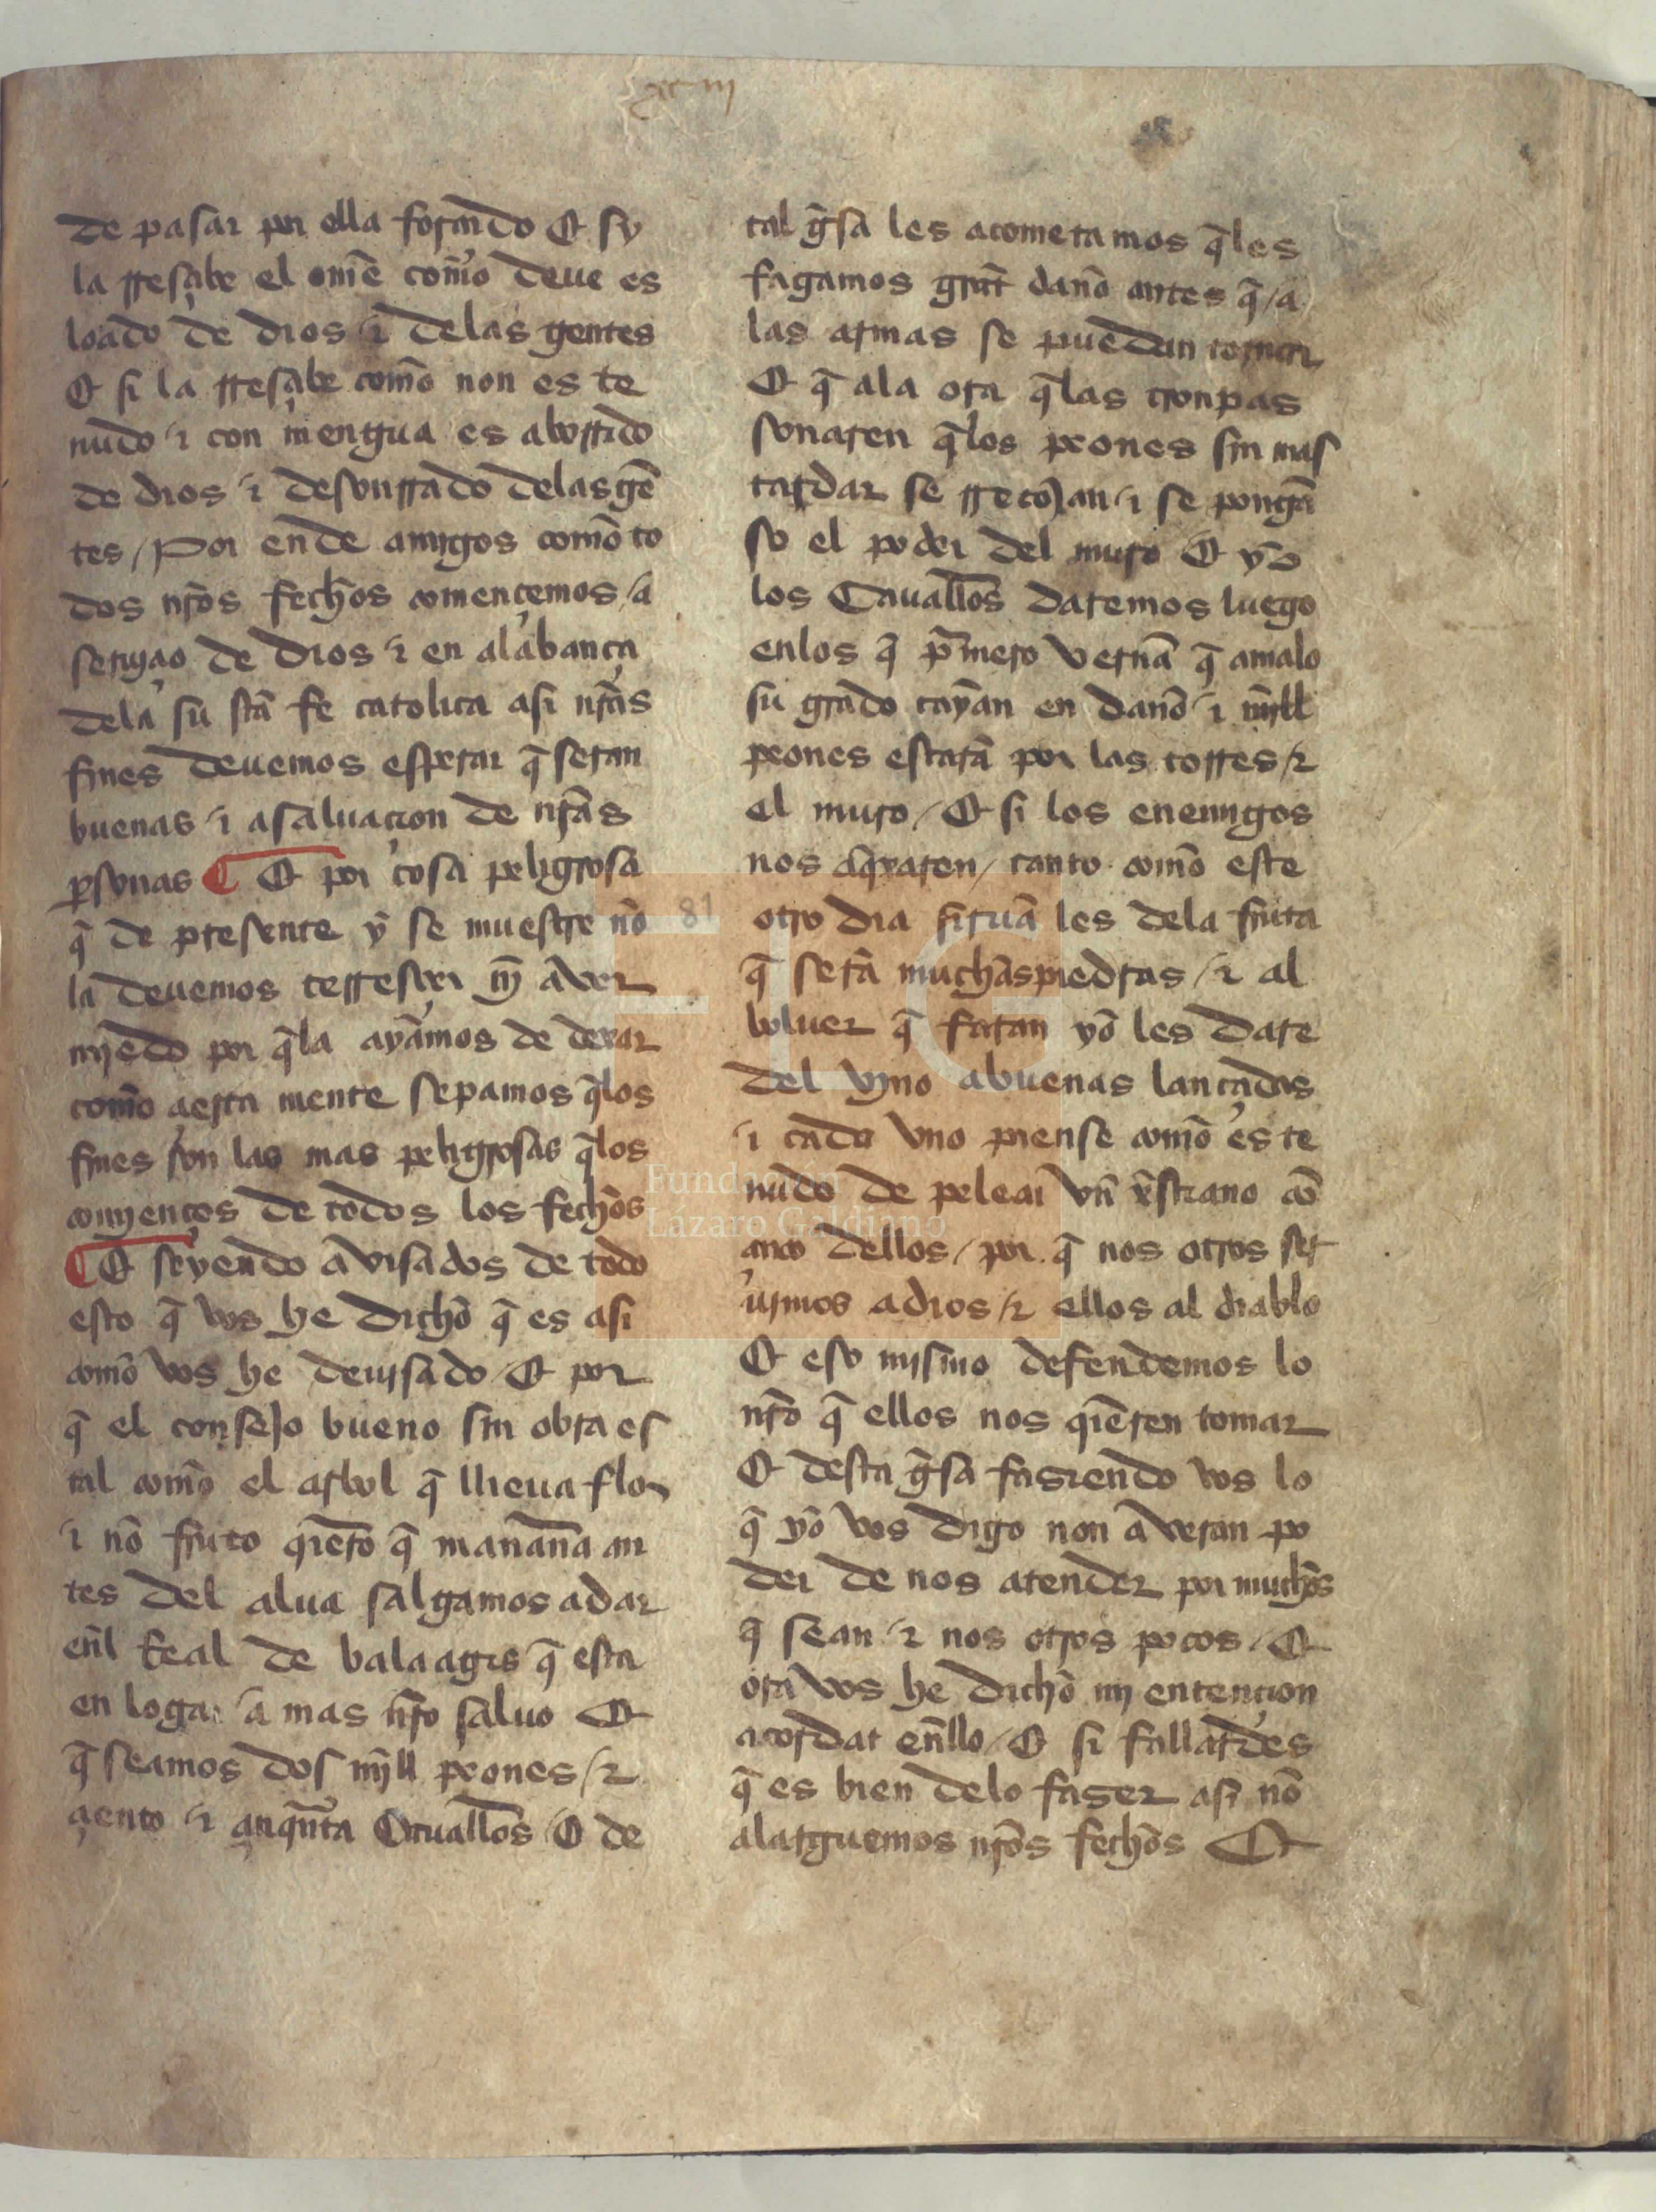 xciii
de pasar por ella forçado Et sy
la rresçibe el om̃e com̃o deue es
loado de dios ⁊ delas gentes
Et si la rresçibe com̃o non es te
nudo ⁊ con mengua es aborrido
de dios ⁊ desonrrado delas gẽ
tes / Por ende amigos com̃o to
dos nr̃os fechos comencemos / a
seruiçio de dios ⁊ en alabança
dela su sta fe catolica asi nr̃as
fines deuemos esperar q̃ seran
buenas ⁊ a saluaçion de nr̃as
ꝑsonas ¶ Et por cosa peligrosa
q̃ de presente y se muestre nõ
la deuemos terresçer nj̃ aver
mjedo por q̃la ayamos de dexar
com̃o çierta mente sepamos q̃los
fines son las mas peligrosas q̃los
comjenços de todos los fechos
¶ Et seyendo avisados de todo
esto q̃ vos he dicho q̃ es asi
com̃o vos he deujsado / Et por
q̃ el consejo bueno sin obra es
tal com̃o el arbol q̃ llieua flor
⁊ nõ fruto qiero q̃ manãna an
tes del alua salgamos a dar
en̄l Real de balaagis q̃ esta
en logar a mas nr̃o saluo Et
q̃ seamos dos mjll peones / ⁊
çiento ⁊ çinqũta Cauallos / O de
tal g̃sa les acometamos q̃les
fagamos grãt danõ antes q̃ / a
las armas se puedan tornar
Et q̃ ala ora q̃las tronpas
sonaren q̃los peones sin mas
tardar se rrecojan ⁊ se pongã
so el poder del muro Et yo
los Cauallos daremos luego
enlos q̃ p̃mero vernã q̃ amalo
su grado cayan en danõ ⁊ mjll
peones estarã por las torres / ⁊
el muro / Et si los enemjgos
nos aq̃xaren / tanto com̃o este
otro dia siruã les dela fruta
q̃ serã muchas piedras / ⁊ al
boluer q̃ faran yo les dare
del vjno a buenas lançadas
⁊ cada vno piense com̃o es te
nudo de pelear vñ xp̃stiano cõ
çinco dellos / por q̃ nos otros ser
ujmos a dios / ⁊ ellos al diablo
Et eso mjsmo defendemos lo
nr̃o q̃ ellos nos qieren tomar
Et desta g̃sa fasiendo vos lo
q̃ yo vos digo non averan po
der de nos atender por muchos
q̃ sean / ⁊ nos otros pocos / Et
ora vos he dicho mj entençion
acordat en̄llo / Et si fallardes
q̃ es bien delo faser asi nõ
alarguemos nr̃os fechos Et
81
FLG
Fundación
Lázaro Galdiano